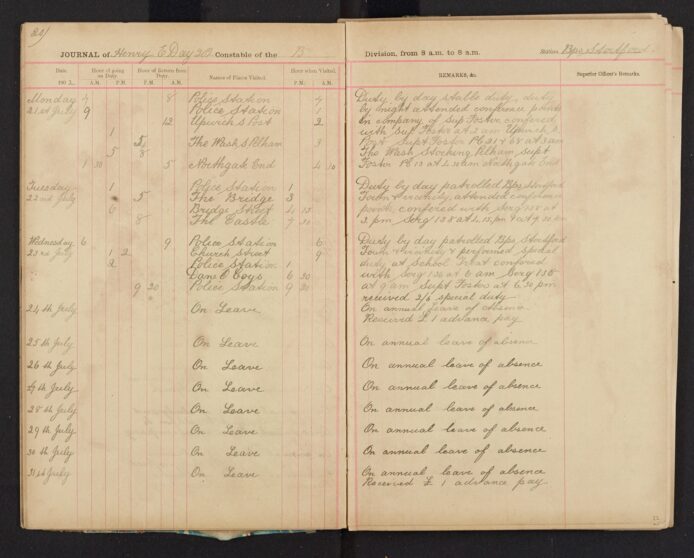 JOURNAL of Henry E Day 20. Constable of the B Division, from 8 a.m. to 8 a.m. Station Bps Stortford.
Date. Hour of going on Duty. Hour of Return from Duty. Names of Places Visited. Hour when Visited. REMARKS, &c. Superior Officer's Remarks.
190 A.M. P.M. P.M. A.M. P.M. A.M.
Monday 4 8 Police Station 4 Duty by day stable duty, duty
21st July 9 Police Station 1 by night attended conference points
12 Upwick's Post 2 in company of Sup Foster conferred
1 with Sup Foster at 2 am Upwick's
5 The Wash S Pelham 3 Post Supt Foster PC 21 & 68 at 3 am
5 8 The Wash Stocking Pelham, Supt
8 30 5 Northgate End 4 10 Foster PC 13 at 4.10am Northgate End
Tuesday 1 Police Station 1 Duty by day patrolled Bps Stortford
22nd July 5 The Bridge 3 Town & vicinity, attended conference
6 Bridge Street 4 15 point, confered with Serg 138 at
8 The Castle 7 2 pm Serg 138 at 4.15.pm
Wednesday 6 9 Police Station 6 Duty by day patrolled Bps Stortford
23rd July 1 2 Church Street 9 Town & vicinity & performed special
2 Police Station 1 duty at School Treat confered
Dane O Coys 6 20 with Serg 138 at 6 am Serg 138
9 20 Police Station 9 20 at 9 am Supt Foster at 6.30 pm
received 2/6 special duty
24th July On Leave On annual leave of absence
Received £1 advance pay
25th July On Leave On annual leave of absence
26th July On Leave On annual leave of absence
27th July On Leave On annual leave of absence
28th July On Leave On annual leave of absence
29th July On Leave On annual leave of absence
30th July On Leave On annual leave of absence
31st July On Leave On annual leave of absence
Received £1 advance pay